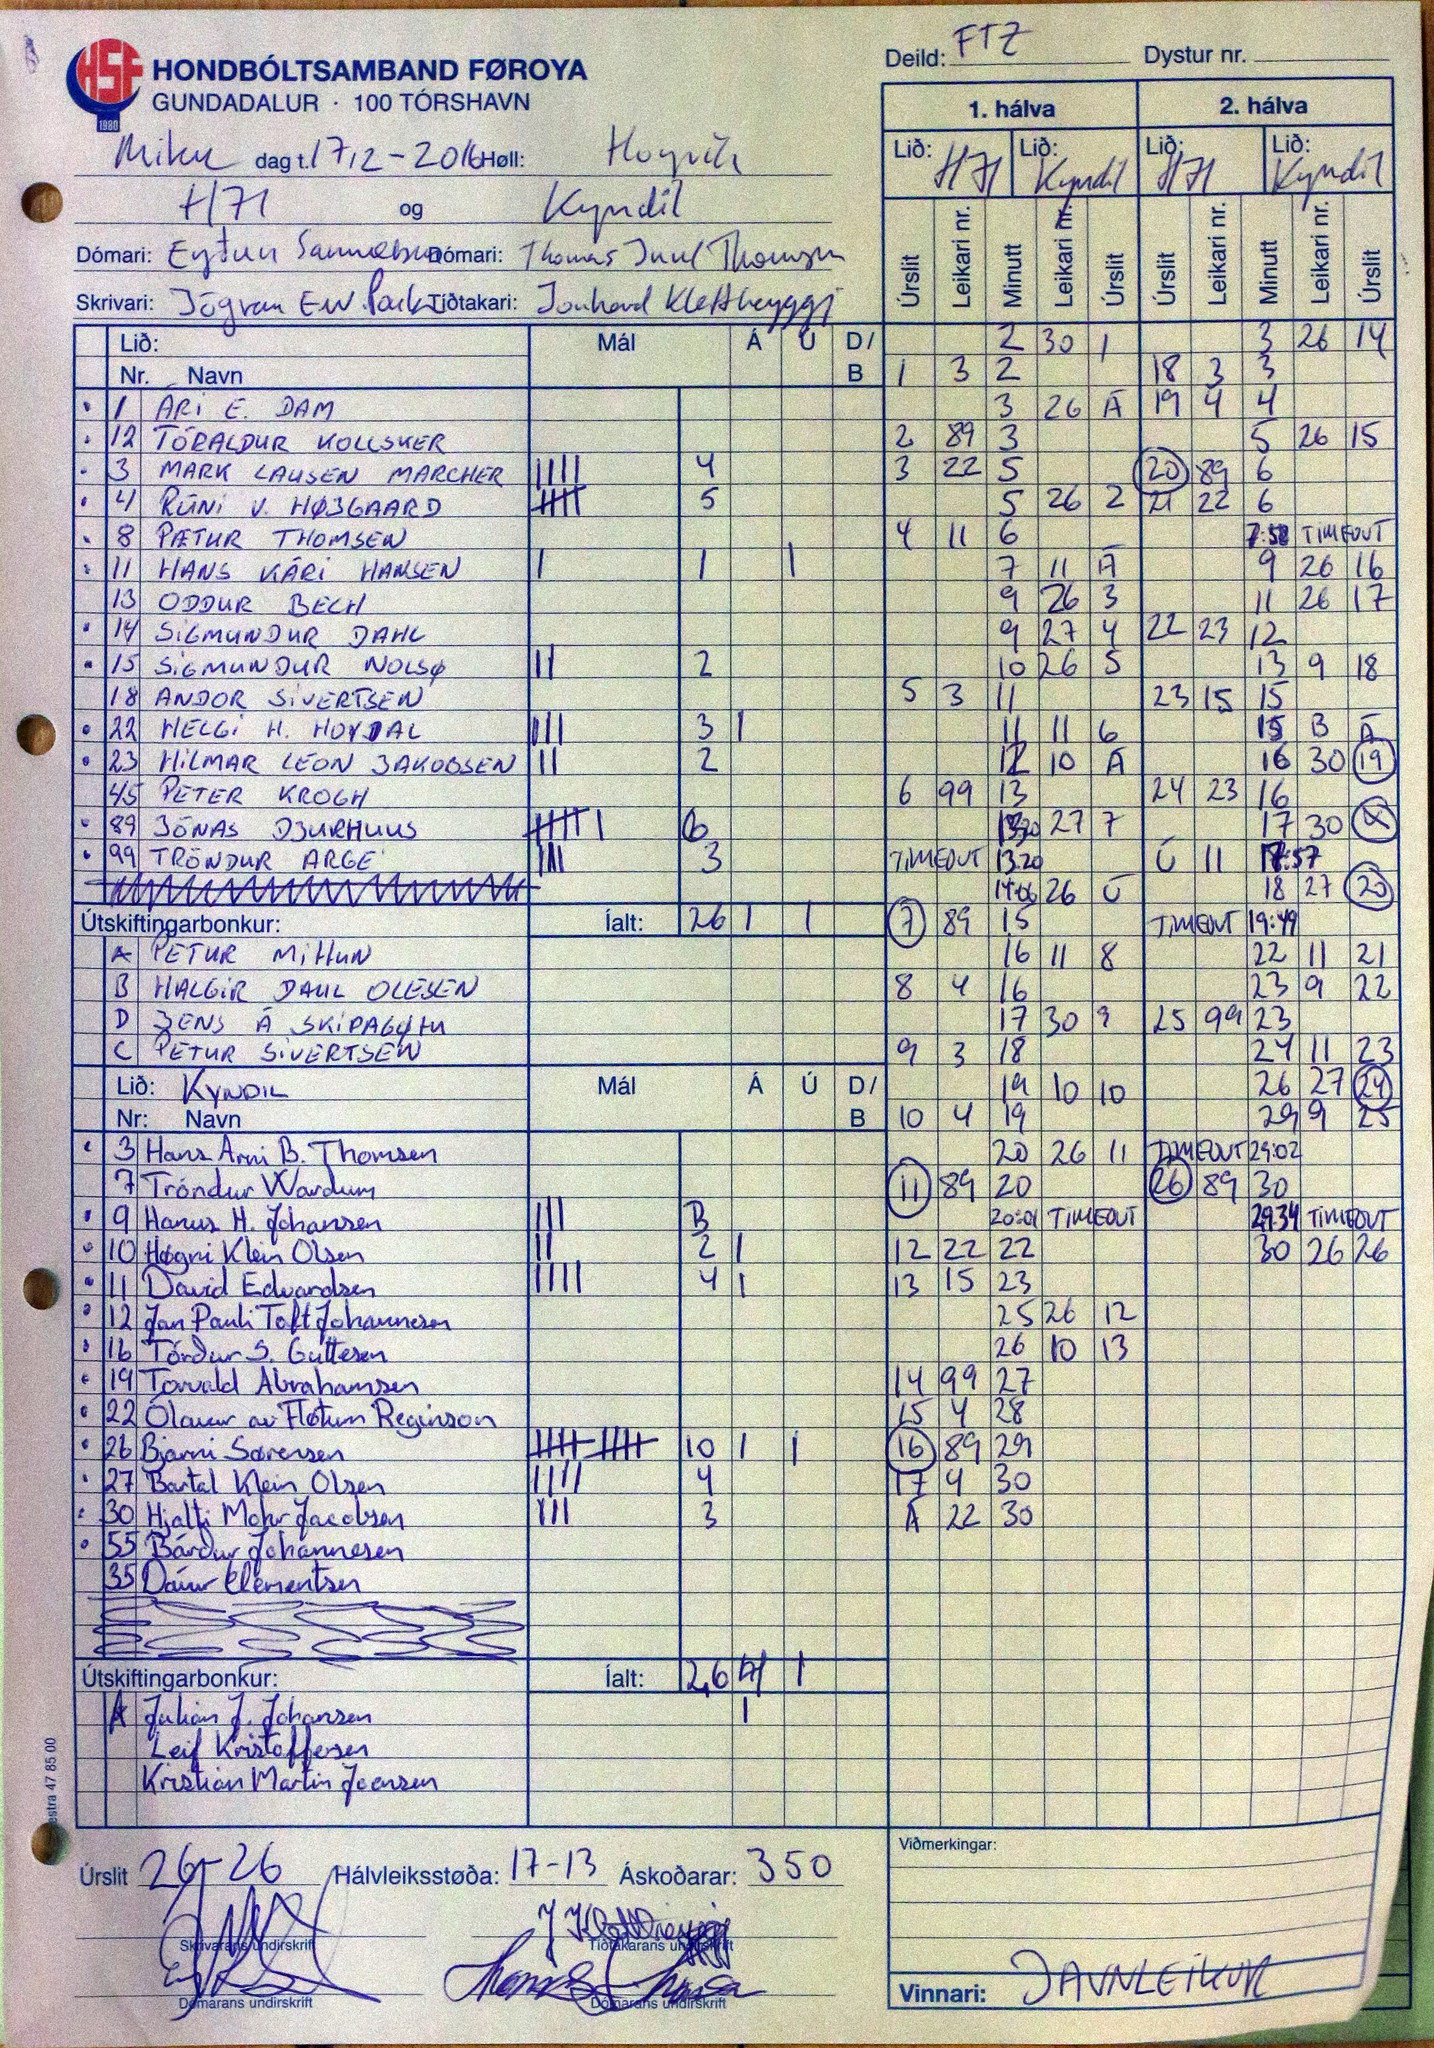 HSF
1980
HONDBÓLTSAMBAND FØROYA
GUNDADALUR · 100 TÓRSHAVN
Deild: FTZ Dystur nr.
Miku dag t. 17/2-2016 Høll: Hoyvík
H71 og Kyndil
Dómari: Eyðun Dómari: Thomas Juul Thomsen
Skrivari: Jógvan Tíðtakari:
1. hálva 2. hálva
Lið: H71 Lið: Kyndil Lið: H71 Lið: Kyndil
Úrslit Leikari nr. Minutt Leikari nr. Úrslit Úrslit Leikari nr. Minutt Leikari nr. Úrslit
Lið: Mál Á Ú D/
Nr. Navn B
1 ÁRI E. DAM
12 TÓRALDUR KOLLSKER
3 MARK LAUSEN MARCHER 4
4 RÚNI V. HØJGAARD 5
8 PÆTUR THOMSEN
11 HANS KÁRI HANSEN 1 1
13 ODDUR BECH
14 SIGMUNDUR DAHL
15 SIGMUNDUR NOLSØ 2
18 ANDOR SIVERTSEN
22 HELGI H. HOYDAL 3 1
23 HILMAR LEON JAKOBSEN 2
45 PETER KROGH
89 JÓNAS DJURHUUS 6
99 TRÓNDUR ARGE 3
Útskiftingarbonkur: Íalt: 26 1 1
A PETUR MITTUN
B HALGIR DAHL OLESEN
D JENS Á SKIPAGØTU
C PETUR SIVERTSEN
Lið: KYNDIL Mál Á Ú D/
Nr: Navn B
3 Hans Arni B. Thomsen
7 Tróndur Wardum
9 Hanus H. Johansen 3
10 Høgni Klein Olsen 2 1
11 David Edvardsen 4 1
12 Jan Pauli Toft Johannesen
16 Tórður S. Guttesen
19 Torvald Abrahamsen
22 Ólavur av Fløtum Reginson
26 Bjarni Sørensen 10 1 1
27 Bartal Klein Olsen 4
30 Hjalti Mohr Jacobsen 3
55 Bárður Johannesen
35 Dánur Clementsen
Útskiftingarbonkur: Íalt: 26 1
A Julian J. Johansen 1
Leif Kristoffersen
Kristian Martin Joensen
2 30 1
1 3 2
3 26 Á
2 89 3
3 22 5
5 26 2
4 11 6
7 11 Á
9 26 3
9 27 4
10 26 5
5 3 11
11 11 6
12 10 Á
6 99 13
27 7
TIMEOUT 13.20
14:06 26 Ú
7 89 15
16 11 8
8 4 16
17 30 9
9 3 18
19 10 10
10 4 19
20 26 11
11 89 20
20:01 TIMEOUT
12 22 22
13 15 23
25 26 12
26 10 13
14 99 27
15 4 28
16 89 29
17 4 30
Á 22 30
3 26 14
18 3 3
19 4 4
5 26 15
20 89 6
21 22 6
7:58 TIMEOUT
9 26 16
11 26 17
22 23 12
13 9 18
23 15 15
15 B Á
16 30 19
24 23 16
17 30
Ú 11 17:57
18 27 20
TIMEOUT 19:49
22 11 21
23 9 22
25 99 23
24 11 23
26 27 24
29 9 25
TIMEOUT 29:02
26 89 30
29.34 TIMEOUT
30 26 26
Úrslit 26-26 Hálvleiksstøða: 17-13 Áskoðarar: 350
Skrivarans undirskrift Tíðtakarans undirskrift
Dómarans undirskrift Dómarans undirskrift
Viðmerkingar:
Vinnari: JAVNLEIKUR
estra 47 85 00